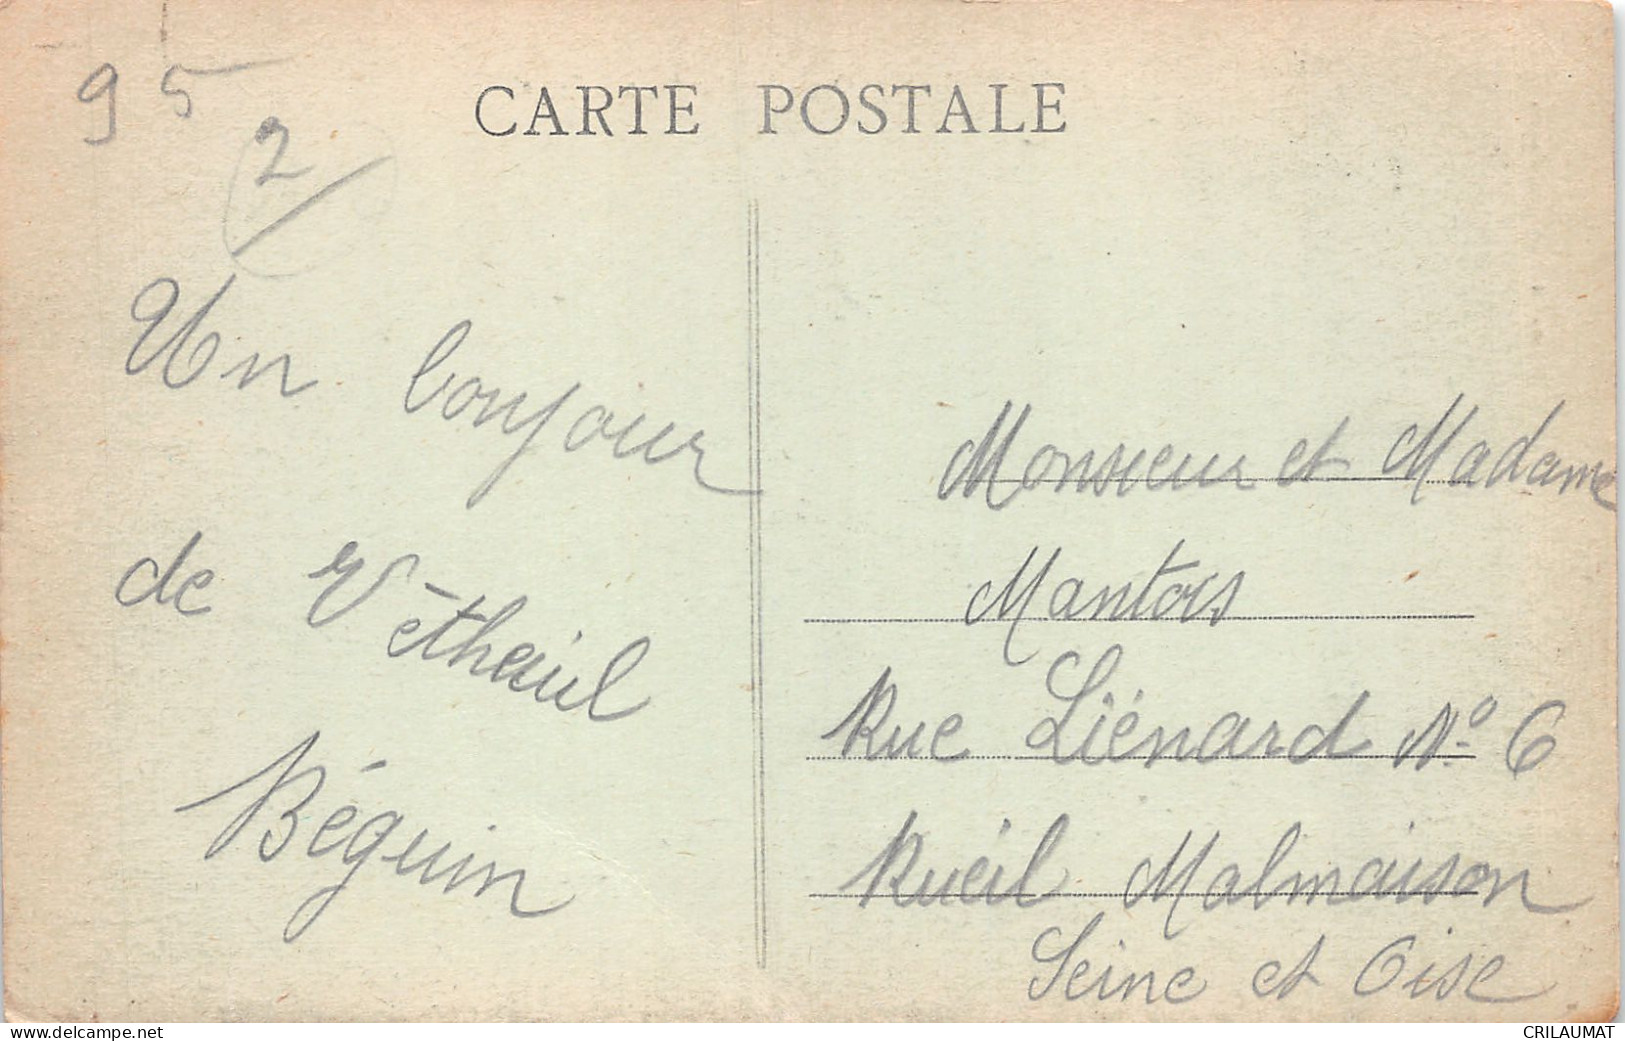 95
2/
CARTE POSTALE
Un bonjour
de Vétheuil
Béguin
Monsieur et Madame
Mantois
Rue Liénard N° 6
Rueil Malmaison
Seine et Oise
www.delcampe.net
CRILAUMAT